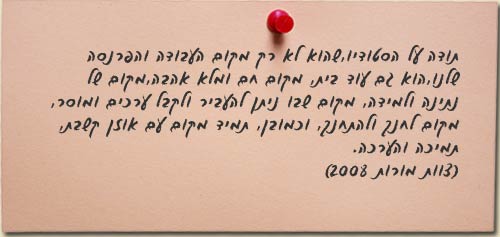 תודה על הסטודיו,שהוא לא רק מקום העבודה והפרנסה
שלנו,הוא גם עוד בית, מקום חם ומלא אהבה,מקום של
נתינה ולמידה, מקום שבו ניתן להעביר ולקבל ערכים ומוסר,
מקום לחנך ולהתחנך, וכמובן, תמיד מקום עם אוזן קשבת,
תמיכה והערכה.
(צוות מורות 2008)